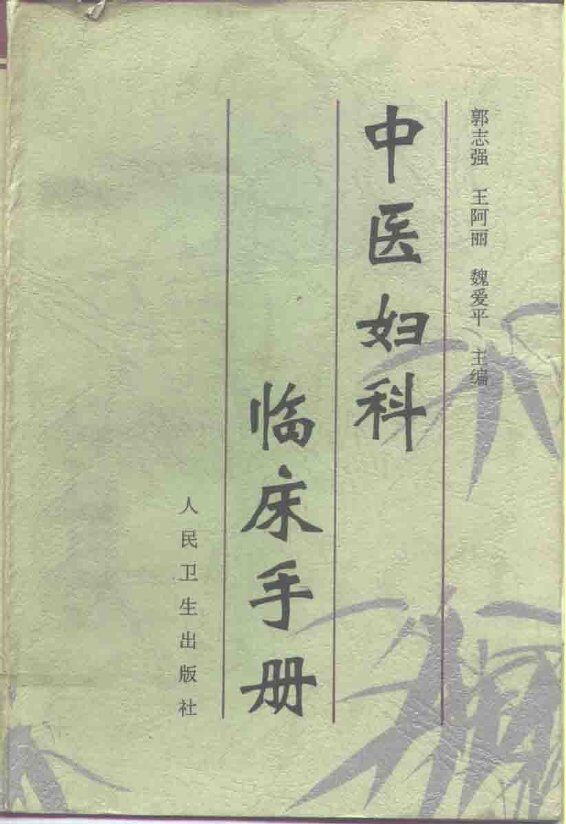 郭志强 王阿丽 魏爱平 主编
中医妇科
临床手册
人民卫生出版社